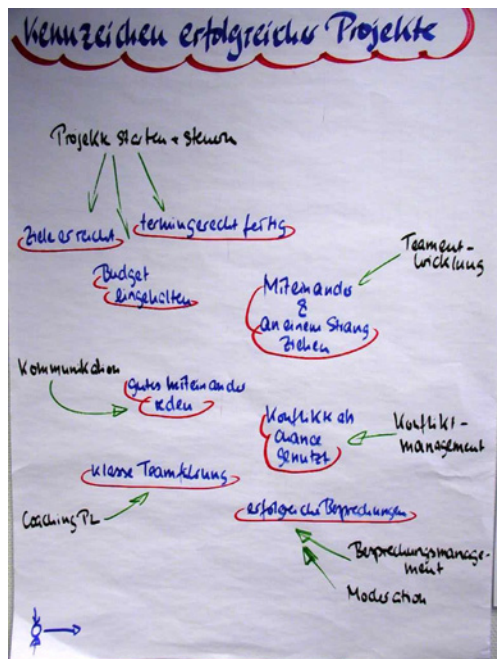 Kennzeichen erfolgreicher Projekte
Projekte starten + steuern
Ziele erreicht
termingerecht fertig
Budget
eingehalten
Teament-
wicklung
Miteinander
&
an einem Strang
ziehen
Kommunikation
gutes Miteinander
reden
Konflikte als
Chance
genutzt
Konflikt-
management
klasse Teamführung
Coaching PL
erfolgreiche Besprechungen
Besprechungsmanage-
ment
Moderation